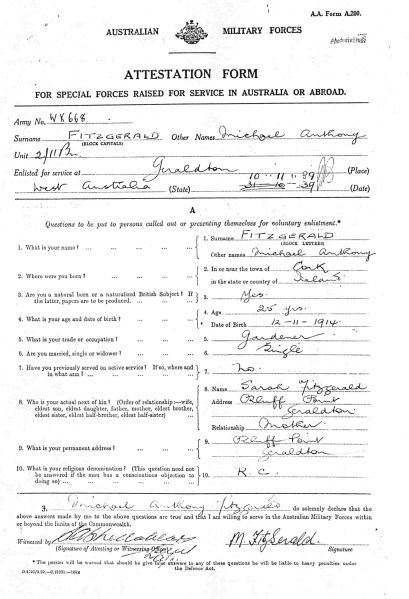 A.A. Form A.200.
AUSTRALIAN MILITARY FORCES
ATTESTATION FORM
FOR SPECIAL FORCES RAISED FOR SERVICE IN AUSTRALIA OR ABROAD.
Army No. WX668
Surname FITZGERALD Other Names Michael Anthony
(BLOCK CAPITALS)
Unit 2/11 Bn.
Enlisted for service at Geraldton (Place)
West Australia (State) 10-11-39 31-10-39 (Date)
A
Questions to be put to persons called out or presenting themselves for voluntary enlistment.*
1. What is your name? ... ... ... ... 1. Surname FITZGERALD
(BLOCK LETTERS)
Other names Michael Anthony
2. Where were you born? ... ... ... ... 2. In or near the town of Cork
in the state or country of Ireland
3. Are you a natural born or a naturalized British Subject? If the latter, papers are to be produced. ... ... 3. Yes.
4. What is your age and date of birth? ... ... ... 4. Age 25 yrs.
Date of Birth 12-11-1914.
5. What is your trade or occupation? ... ... ... 5. Gardener
6. Are you married, single or widower? ... ... ... 6. Single
7. Have you previously served on active service? If so, where and in what arm? ... ... ... 7. No.
8. Who is your actual next of kin? (Order of relationship:—wife, eldest son, eldest daughter, father, mother, eldest brother, eldest sister, eldest half-brother, eldest half-sister) 8. Name Sarah Fitzgerald
Address Bluff Point
Geraldton
Relationship Mother
9. What is your permanent address? ... ... ... 9. Bluff Point
Geraldton
10. What is your religious denomination? (This question need not be answered if the man has a conscientious objection to doing so) ... ... ... 10. R.C.
I, Michael Anthony Fitzgerald do solemnly declare that the
above answers made by me to the above questions are true and that I am willing to serve in the Australian Military Forces within
or beyond the limits of the Commonwealth.
Witnessed by M. Fitzgerald.
(Signature of Attesting or Witnessing Officer) Signature
* The person will be warned that should he give false answers to any of these questions he will be liable to heavy penalties under
the Defence Act.